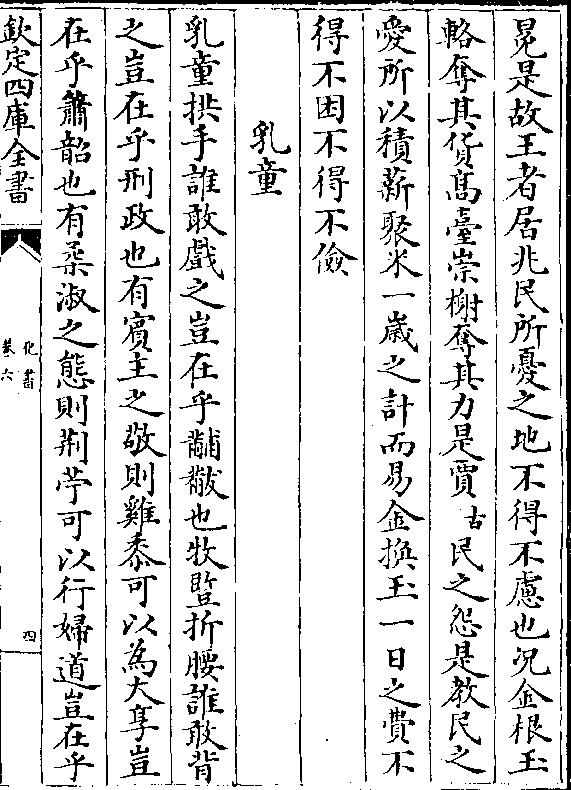 冕是故王者居兆民所憂之地不得不慮也况金根玉
輅奪其货髙臺崇榭奪其力是賈古民之怨是教民之
愛所以積薪聚米一歲之計而易金換玉一日之費不
得不困不得不儉
乳童
乳童拱手誰敢戲之豈在乎黼黻也牧豎折腰誰敢背
之豈在乎刑政也有賓主之敬則雞黍可以為大享豈
在乎簫韶也有柔淑之態則荆苧可以行婦道豈在乎
欽定四庫全書
化書
卷六
四